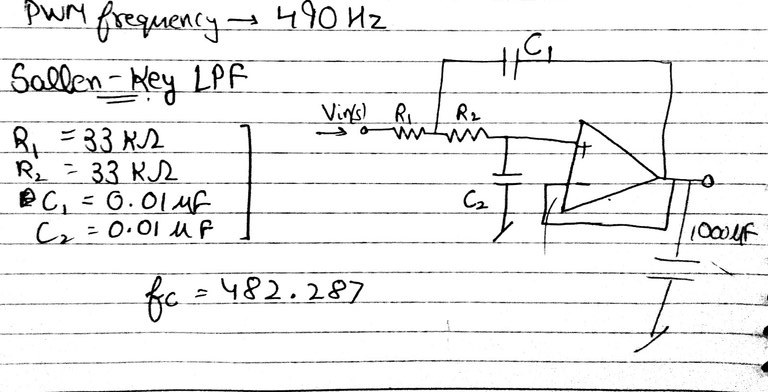 PWM frequency → 490 Hz
Sallen-Key LPF
R1 = 33 KΩ
R2 = 33 KΩ
C1 = 0.01 µF
C2 = 0.01 µF
fc = 482.287
C1
Vin(s) R1 R2
+
-
C2
1000µF